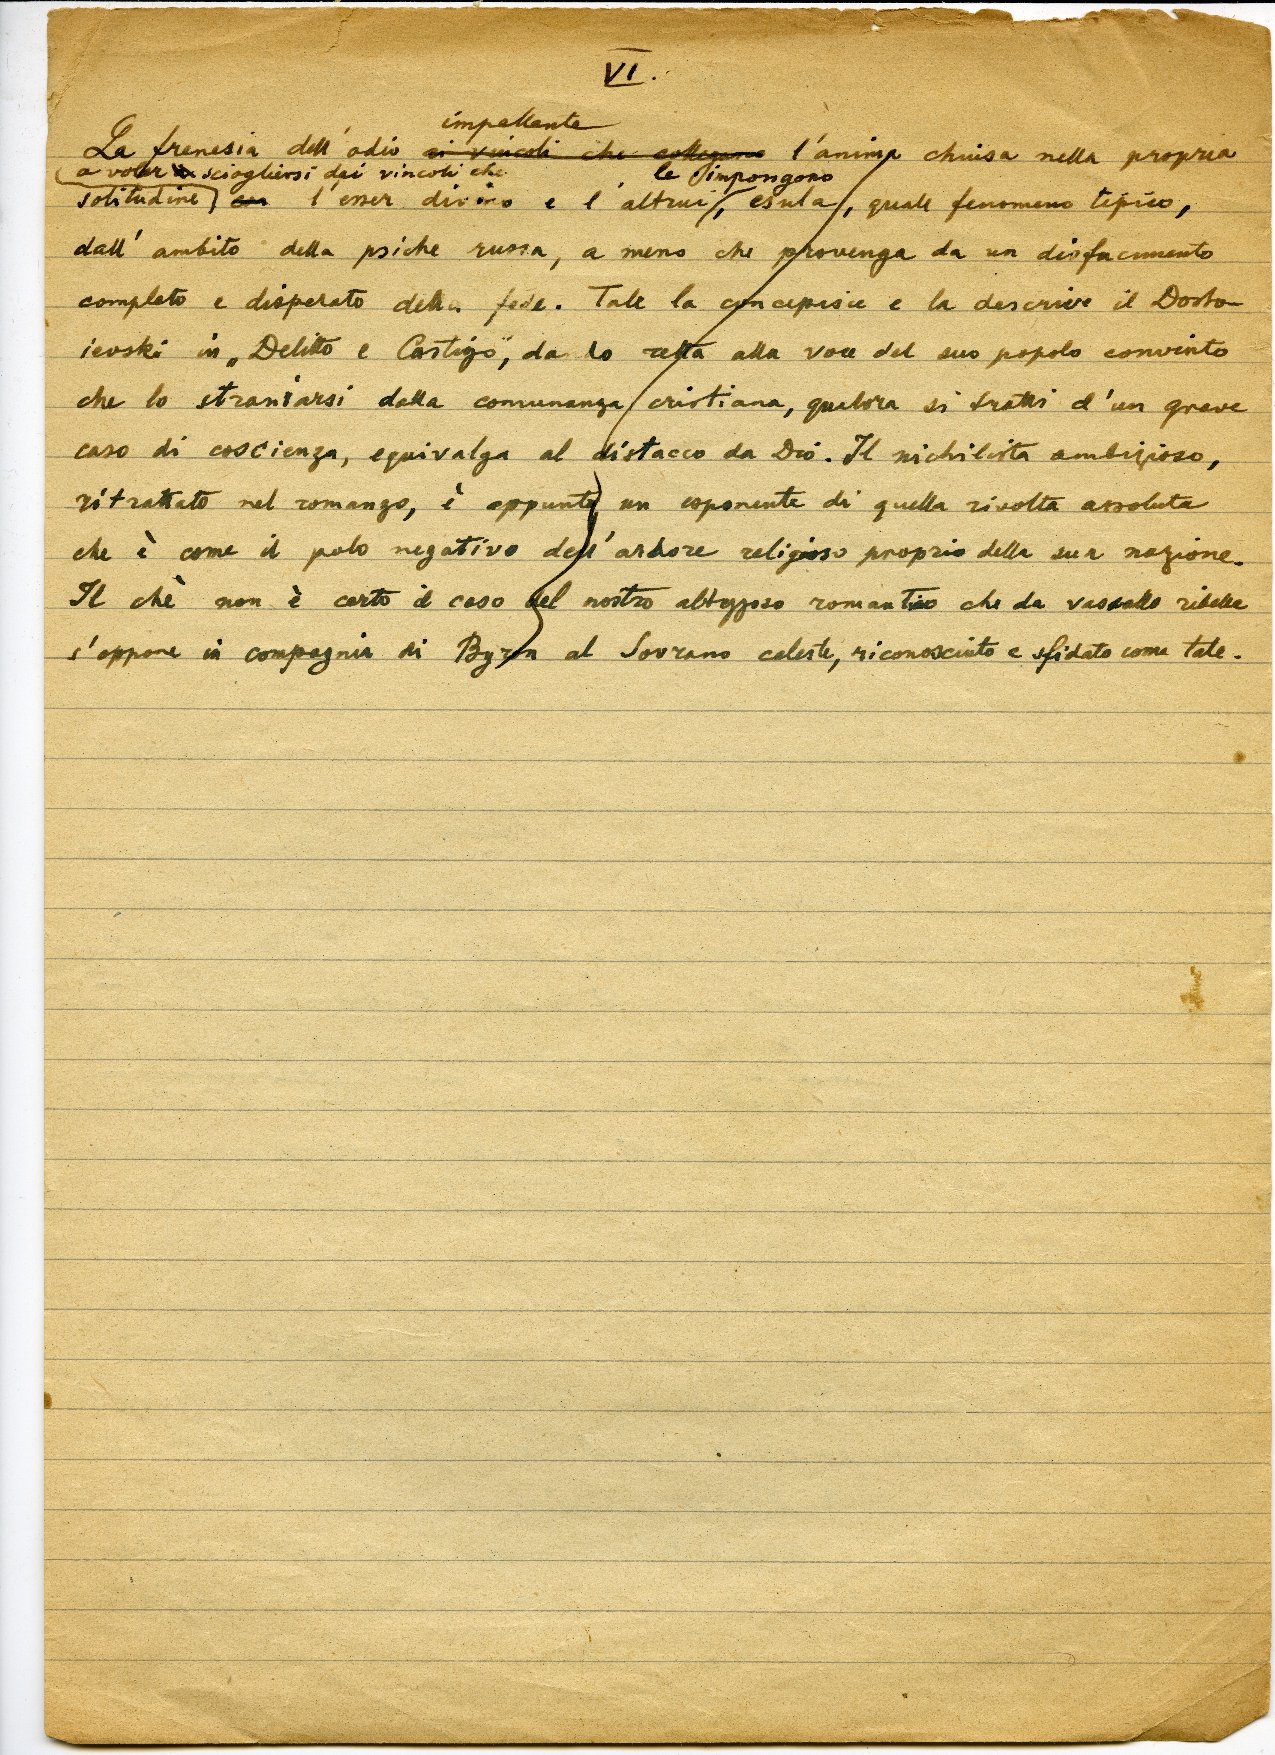 VI.
impellente
La frenesia dell'odio ai vincoli che collegano l'anima chiusa nella propria
a voler sciogliersi dai vincoli che le impongono
solitudine con l'esser divino e l'altrui, esula, quale fenomeno tipico,
dall'ambito della psiche russa, a meno che provenga da un disfacimento
completo e disperato della fede. Tale la concepisce e la descrive il Dosto-
ievski in „Delitto e Castigo", dando retta alla voce del suo popolo convinto
che lo straniarsi dalla comunanza cristiana, qualora si tratti d'un grave
caso di coscienza, equivalga al distacco da Dio. Il nichilista ambizioso,
ritrattato nel romanzo, è appunto un esponente di quella rivolta assoluta
che è come il polo negativo dell'ardore religioso proprio della sua nazione.
Il chè non è certo il caso del nostro altezzoso romantico che da vassallo ribelle
s'oppone in compagnia di Byron al Sovrano celeste, riconosciuto e sfidato come tale.